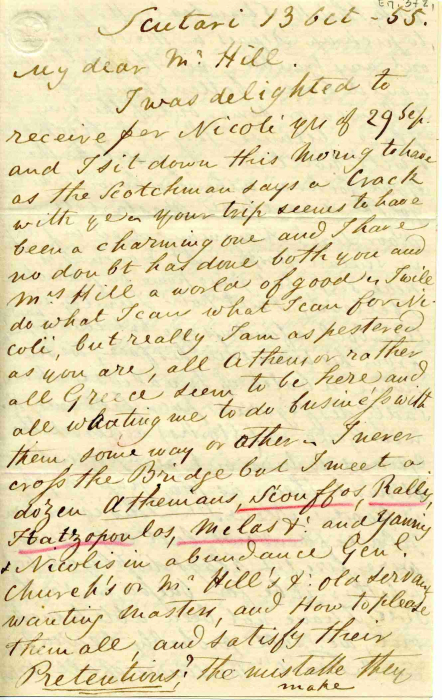 E7, 372,
Scutari 13 Oct - 55.
My dear Mr Hill.
I was delighted to
receive per Nicoli yrs of 29 Sep.
and I sit down this Morng to have
as the Scotchman says a Crack
with ye - your trip seems to have
been a charming one and I have
no doubt has done both you and
Mrs Hill a world of good - I will
do what I can what I can for Ni-
coli, but really I am as pestered
as you are, all Athens or rather
all Greece seem to be here and
all wanting me to do business with
them some way or other - I never
cross the Bridge but I meet a
dozen Athenians, Scouffos, Rally,
Hatzopoulos, Melas &: and Yanny
& Nicolis in abundance Genl.
Church's or Mr Hill's &: old servants
wanting masters, and How to please
them all, and satisfy their
Pretentions? the mistake they
make